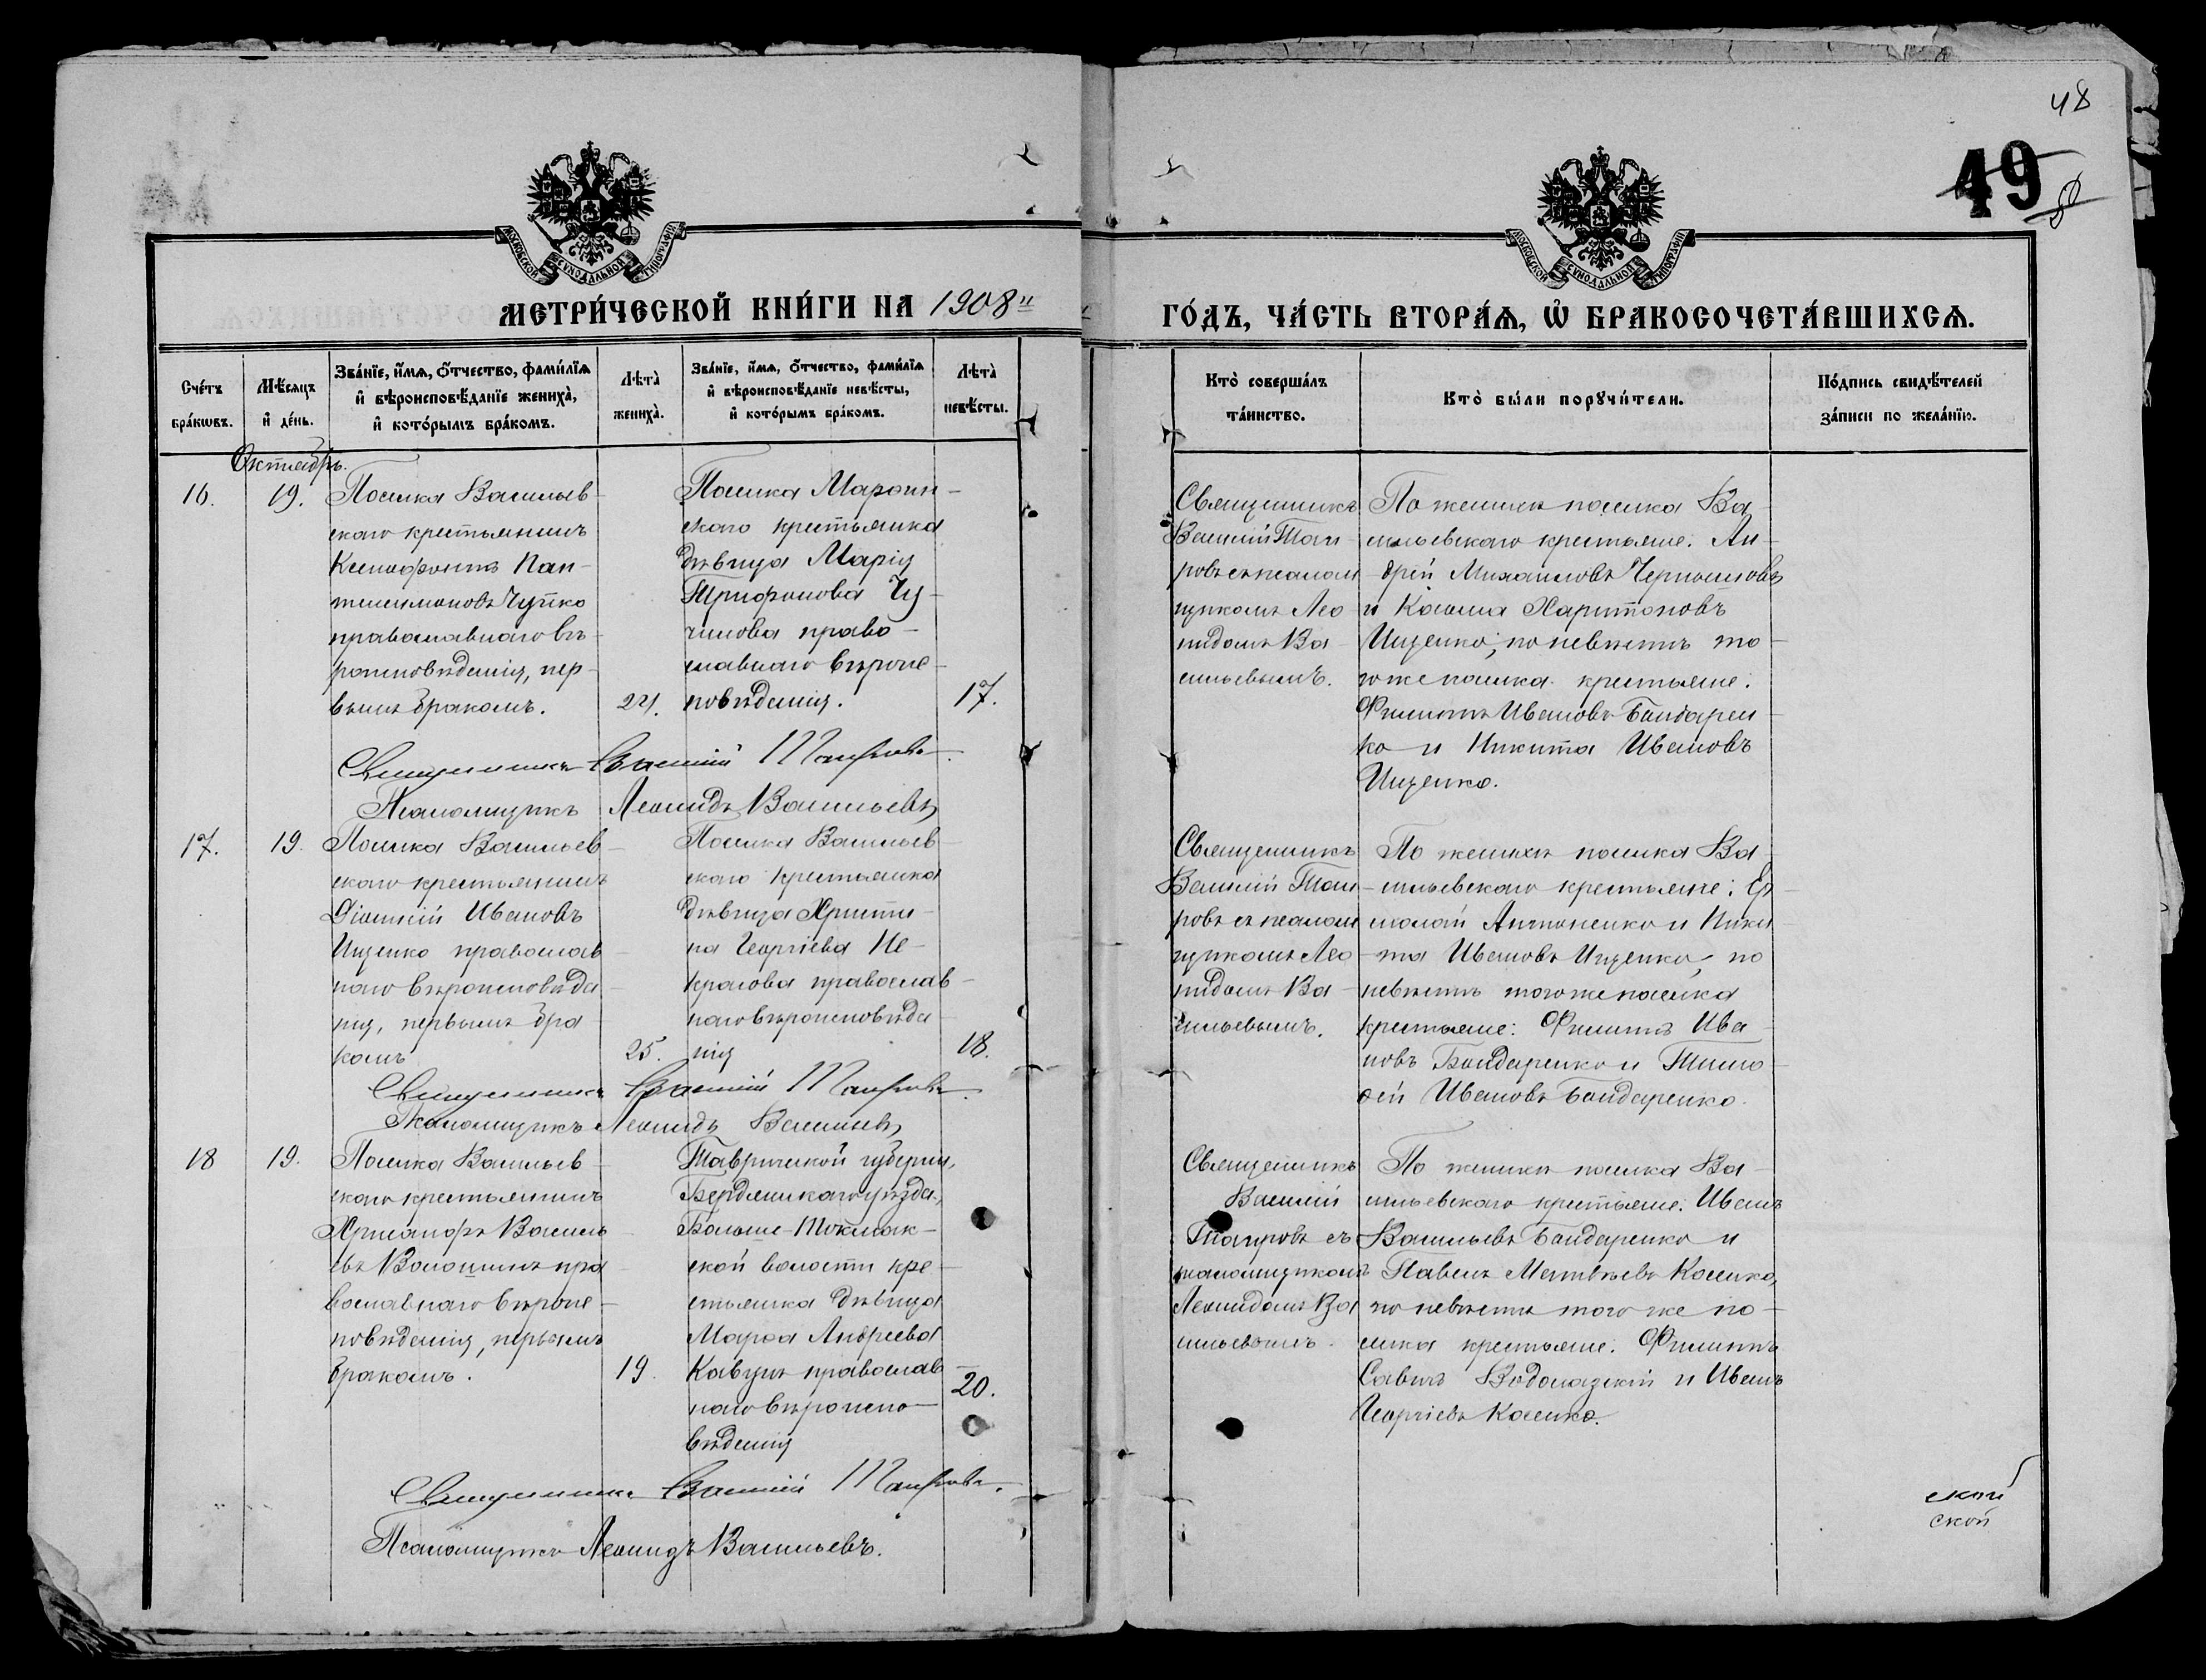 48
49
50
МОСКОВСКОЙ СѴНОДАЛЬНОЙ ТИПОГРАФІИ
МОСКОВСКОЙ СѴНОДАЛЬНОЙ ТИПОГРАФІИ
МЕТРИ́ЧЕСКОЙ КНИ́ГИ НА 1908й
ГО́ДЪ, ЧА́СТЬ ВТОРА́Я, Ѡ҆ БРАКОСОЧЕТА́ВШИХСЯ.
Сче́тъ бра́кѡвъ.
Мѣ́сяцъ и҆ де́нь.
Зва́нїе, и҆́мя, ѻ҆́тчество, фами́лїя и҆ вѣроисповѣ́данїе жениха̀, и҆ кото́рымъ бра́комъ.
Лѣта̀ жениха̀.
Зва́нїе, и҆́мя, ѻ҆́тчество, фами́лїя и҆ вѣроисповѣ́данїе невѣ́сты, и҆ кото́рымъ бра́комъ.
Лѣта̀ невѣ́сты.
Кто̀ соверша́лъ та́инство.
Кто̀ бы́ли порꙋчи́тели.
По́дпись свидѣ́телей за́писи по жела́нїю.
Октябрь.
16.
19.
Поселка Васильев-
скаго крестьянинъ
Ксенофонтъ Пан-
телеимоновъ Чупко
православнаго вѣ-
роисповѣданія, пер-
вымъ бракомъ.
24.
Поселка Маріин-
скаго крестьянка
дѣвица Марія
Трифонова Чу-
чинова право-
славнаго вѣроис-
повѣданія.
17.
Священникъ
Василій Таи-
ровъ съ псалом
щикомъ Лео
нидомъ Ва-
сильевымъ.
По женихѣ поселка Ва-
сильевскаго крестьяне: Ан-
дрей Михаиловъ Чернышовъ
и Косьма Харитоновъ
Ищенко; по невѣстѣ то-
гоже поселка крестьяне:
Филиппъ Ивановъ Бондарен-
ко и Никита Ивановъ
Ищенко.
Священникъ Василій Таировъ.
Псаломщикъ Леонидъ Васильевъ
17.
19.
Поселка Васильев-
скаго крестьянинъ
Діонисій Ивановъ
Ищенко православ
наго вѣроисповѣда-
нія, первымъ бра
комъ
25.
Поселка Васильев-
скаго крестьянка
дѣвица Христи-
на Георгіева Не-
красова православ-
наго вѣроисповѣда-
нія
18.
Священникъ
Василій Таи-
ровъ съ псалом
щикомъ Лео-
нидомъ Ва-
сильевымъ.
По женихѣ поселка Ва-
сильевскаго крестьяне: Ер-
молай Антоненко и Ники-
та Ивановъ Ищенко; по
невѣстѣ того же поселка
крестьяне: Филиппъ Ива-
новъ Бондаренко и Тимо-
фей Ивановъ Бондаренко.
Священникъ Василій Таировъ.
Псаломщикъ Леонидъ Васильевъ
18
19.
Поселка Васильев-
скаго крестьянинъ
Хрисанфъ Василь-
евъ Волошинъ пра-
вославнаго вѣроис-
повѣданія, первымъ
бракомъ.
19.
Таврической губерніи,
Бердянскаго уѣзда,
Больше-Токмак-
ской волости кре-
стьянка дѣвица
Марѳа Андреева
Кавунъ православ-
наго вѣроиспо-
вѣданія
20.
Священникъ
Василій
Таировъ съ
псаломщикомъ
Леонидомъ Ва
сильевымъ.
По женихѣ поселка Ва-
сильевскаго крестьяне: Иванъ
Васильевъ Бондаренко и
Павелъ Матвѣевъ Косенко,
по невѣстѣ того же по-
селка крестьяне: Филиппъ
Савинъ Водолазскій и Иванъ
Георгіевъ Косенко.
Священникъ Василій Таировъ.
Псаломщикъ Леонидъ Васильевъ.
ской
ской